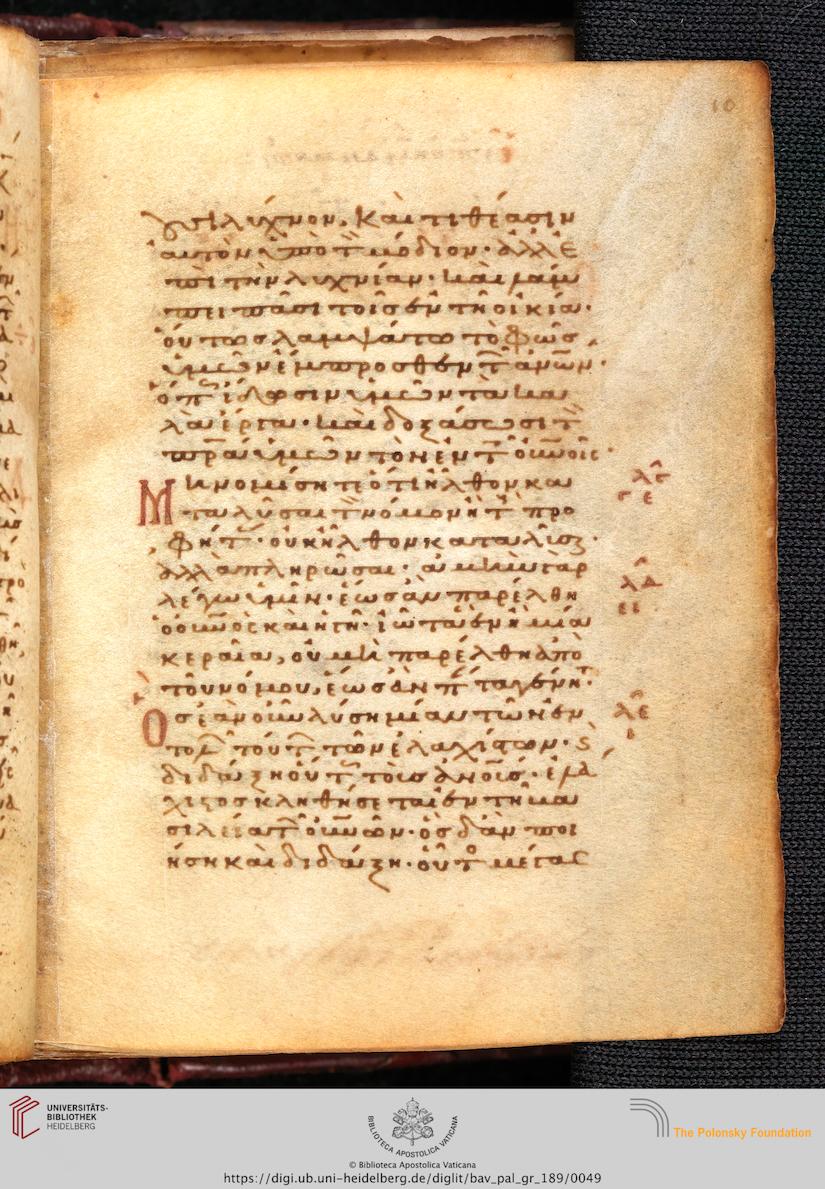 10
γσι λύχνον, καὶ τιθέασιν
αὐτὸν ὑπὸ τ μόδιον· ἀλλ ἐ
πὶ τὴν λυχνίαν· καὶ λάμ
πει πᾶσι τοῖς ἐν τῆ οἰκία·
οὕτως λαμψάτω τὸ φῶς
ὑμῶν ἔμπροσθεν τ ἀνων·
ὅπ ἴδωσιν ὑμῶν τὰ κα
λὰ ἔργα· καὶ δοξάσωσι τ
πρα ὑμῶν τὸν ἐν τ οὐνοις·
Μὴ νομίσητε ὅτι ἦλθον κα
ταλῦσαι τ νόμον ἢ τ προ
φήτ· οὐκ ἦλθον καταλῦσ·
ἀλλὰ πληρῶσαι· ἀμὴν γὰρ
λέγω ὑμῖν· ἕως ἂν παρέλθη
ὁ οὐνος καὶ ἡ γῆ· ἰῶτα ἓν ἢ μία
κεραία, οὐ μὴ παρέλθη ἀπὸ
τοῦ νόμου, ἕως ἂν π τα γένη·
Ὃς ἐὰν οὖν λύση μίαν τῶν ἐν
τολ τούτ τῶν ἐλαχίστων· ϛ
διδάξη οὕτ τοὺς ἀνους· ἐλα
χιστος κληθήσεται ἐν τῆ βα
σιλεία τ οὐνων· ὃς δ ἂν ποι
ήση καὶ διδάξη· οὗτ μέγας
λγ
ε
λδ
ε
λε
ι
UNIVERSITÄTS-
BIBLIOTHEK
HEIDELBERG
BIBLIOTECA APOSTOLICA VATICANA
© Biblioteca Apostolica Vaticana
The Polonsky Foundation
https://digi.ub.uni-heidelberg.de/diglit/bav_pal_gr_189/0049